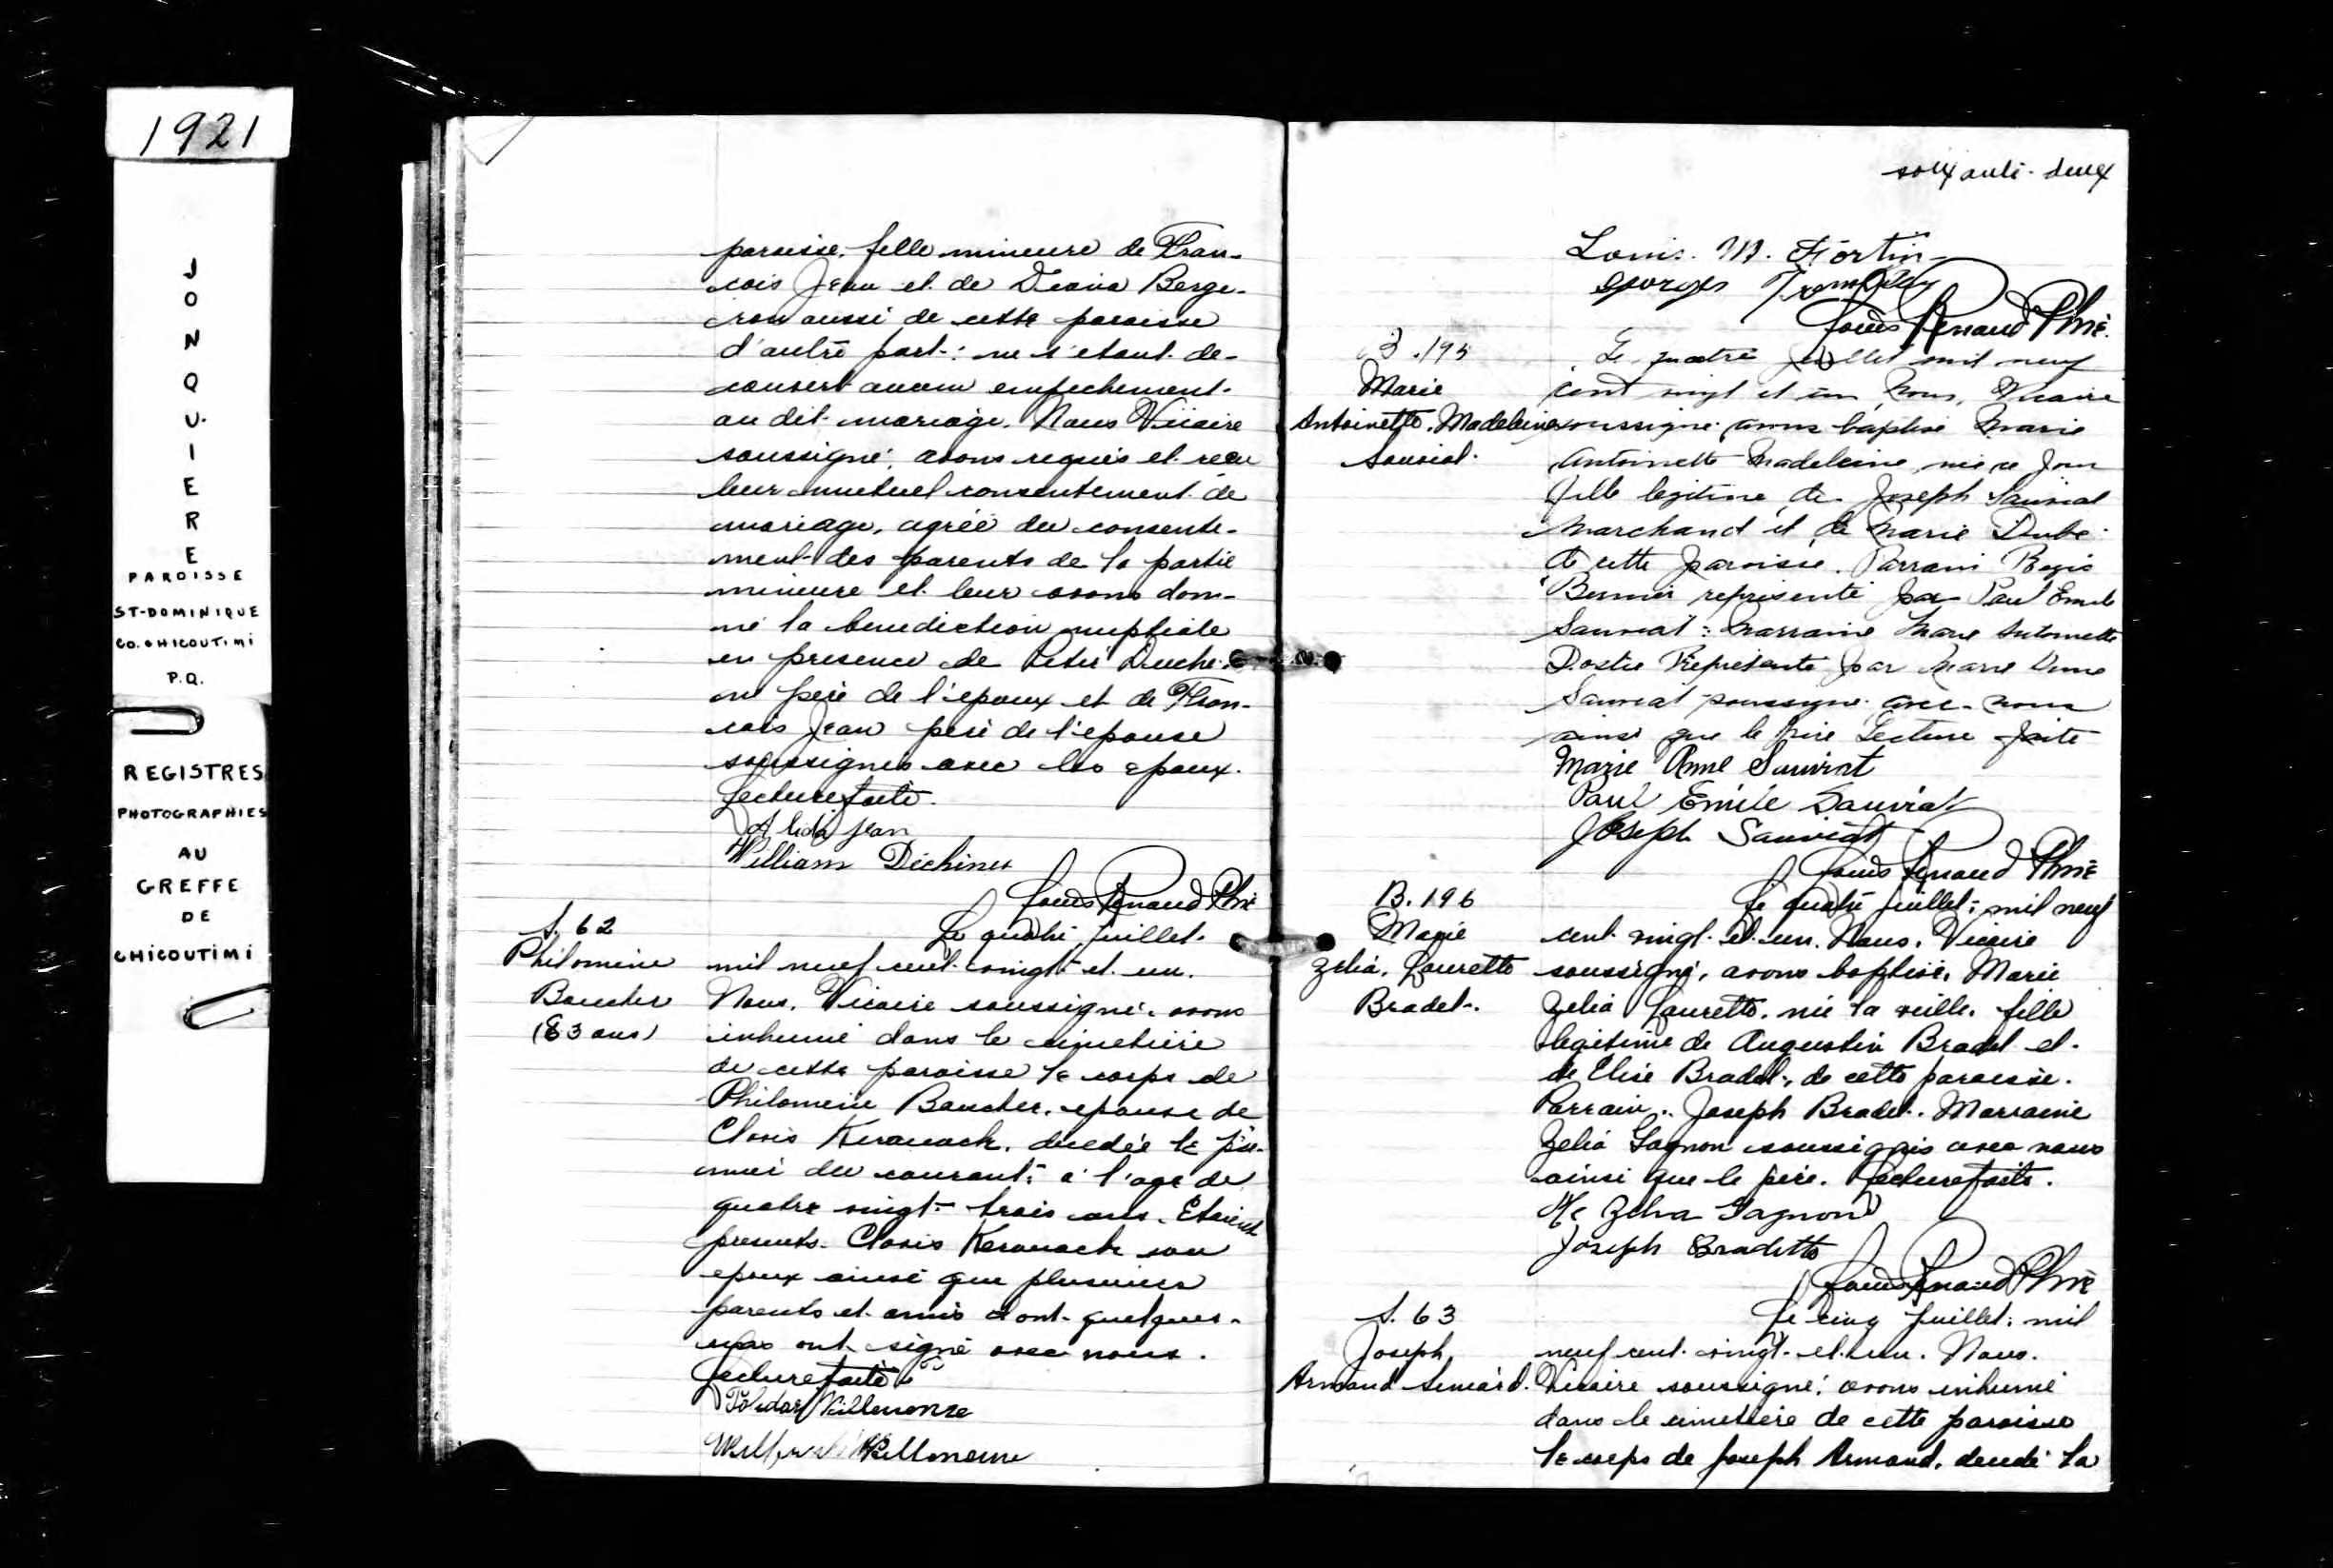 1921
JONQUIERE
PAROISSE
ST-DOMINIQUE
CO. CHICOUTIMI
P.Q.
REGISTRES
PHOTOGRAPHIES
AU
GREFFE
DE
CHICOUTIMI
paroisse, fille mineure de Fran-
cois Jean et de Diana Berge-
ron aussi de cette paroisse
d'autre part: ne s'etant de-
couvert aucun empechement
au dit mariage. Nous Vicaire
soussigné, avons requis et recu
leur mutuel consentement de
mariage, agréé du consente-
ment des parents de la partie
mineure et leur avons don-
né la benediction nuptiale
en presence de Duche-
ne père de l'epoux et de Fran-
cois Jean père de l'epouse
soussignés avec les epoux.
Lecture faite.
Alida Jean
William Dechines
Louis Renaud Ptre
S. 62
Philomène
Boucher
(83 ans)
Le quatre juillet
mil neuf cent vingt et un.
Nous, Vicaire soussigné, avons
inhumé dans le cimetière
de cette paroisse le corps de
Philomène Boucher, epouse de
Clovis Kerouack, decedée le pre-
mier du courant à l'age de
quatre vingt-trois ans. Etaient
presents. Clovis Kerouack son
epoux ainsi que plusieurs
parents et amis dont quelques-
uns ont signé avec nous.
Lecture faite
Villeneuve
Villeneuve
soixante-deux
Louis. M. Fortin
Georges Tremblay
Louis Renaud Ptre.
B. 195
Marie
Antoinette. Madeleine
Sauviat.
Le quatre juillet mil neuf
cent vingt et un, Nous, Vicaire
soussigné avons baptisé Marie
Antoinette Madeleine, née ce jour
fille legitime de Joseph Sauviat
marchand et de Marie Dubé
de cette paroisse. Parrain Regis
Bernier représenté par Paul Emile
Sauviat: Marraine Marie Antoinette
Dostie Représenté par Marie Anne
Sauviat soussignés avec nous
ainsi que le Père Lecture faite
Marie Anne Sauviat
Paul Emile Sauviat
Joseph Sauviat
Louis Renaud Ptre
B. 196
Marie
Zelia. Laurette
Bradet.
Le quatre juillet, mil neuf
cent vingt et un. Nous, Vicaire
soussigné, avons baptisé, Marie
Zelia Laurette, née la veille, fille
legitime de Augustin Bradet et
de Elise Bradet, de cette paroisse.
Parrain. Joseph Bradet. Marraine
Zelia Gagnon soussignés avec nous
ainsi que le père. Lecture faite.
Zelia Gagnon
Joseph Bradette
Louis Renaud Ptre
S. 63
Joseph
Armand Simard.
Le cinq juillet, mil
neuf cent vingt et un. Nous.
Vicaire soussigné, avons inhumé
dans le cimetière de cette paroisse
le corps de Joseph Armand, decedé la